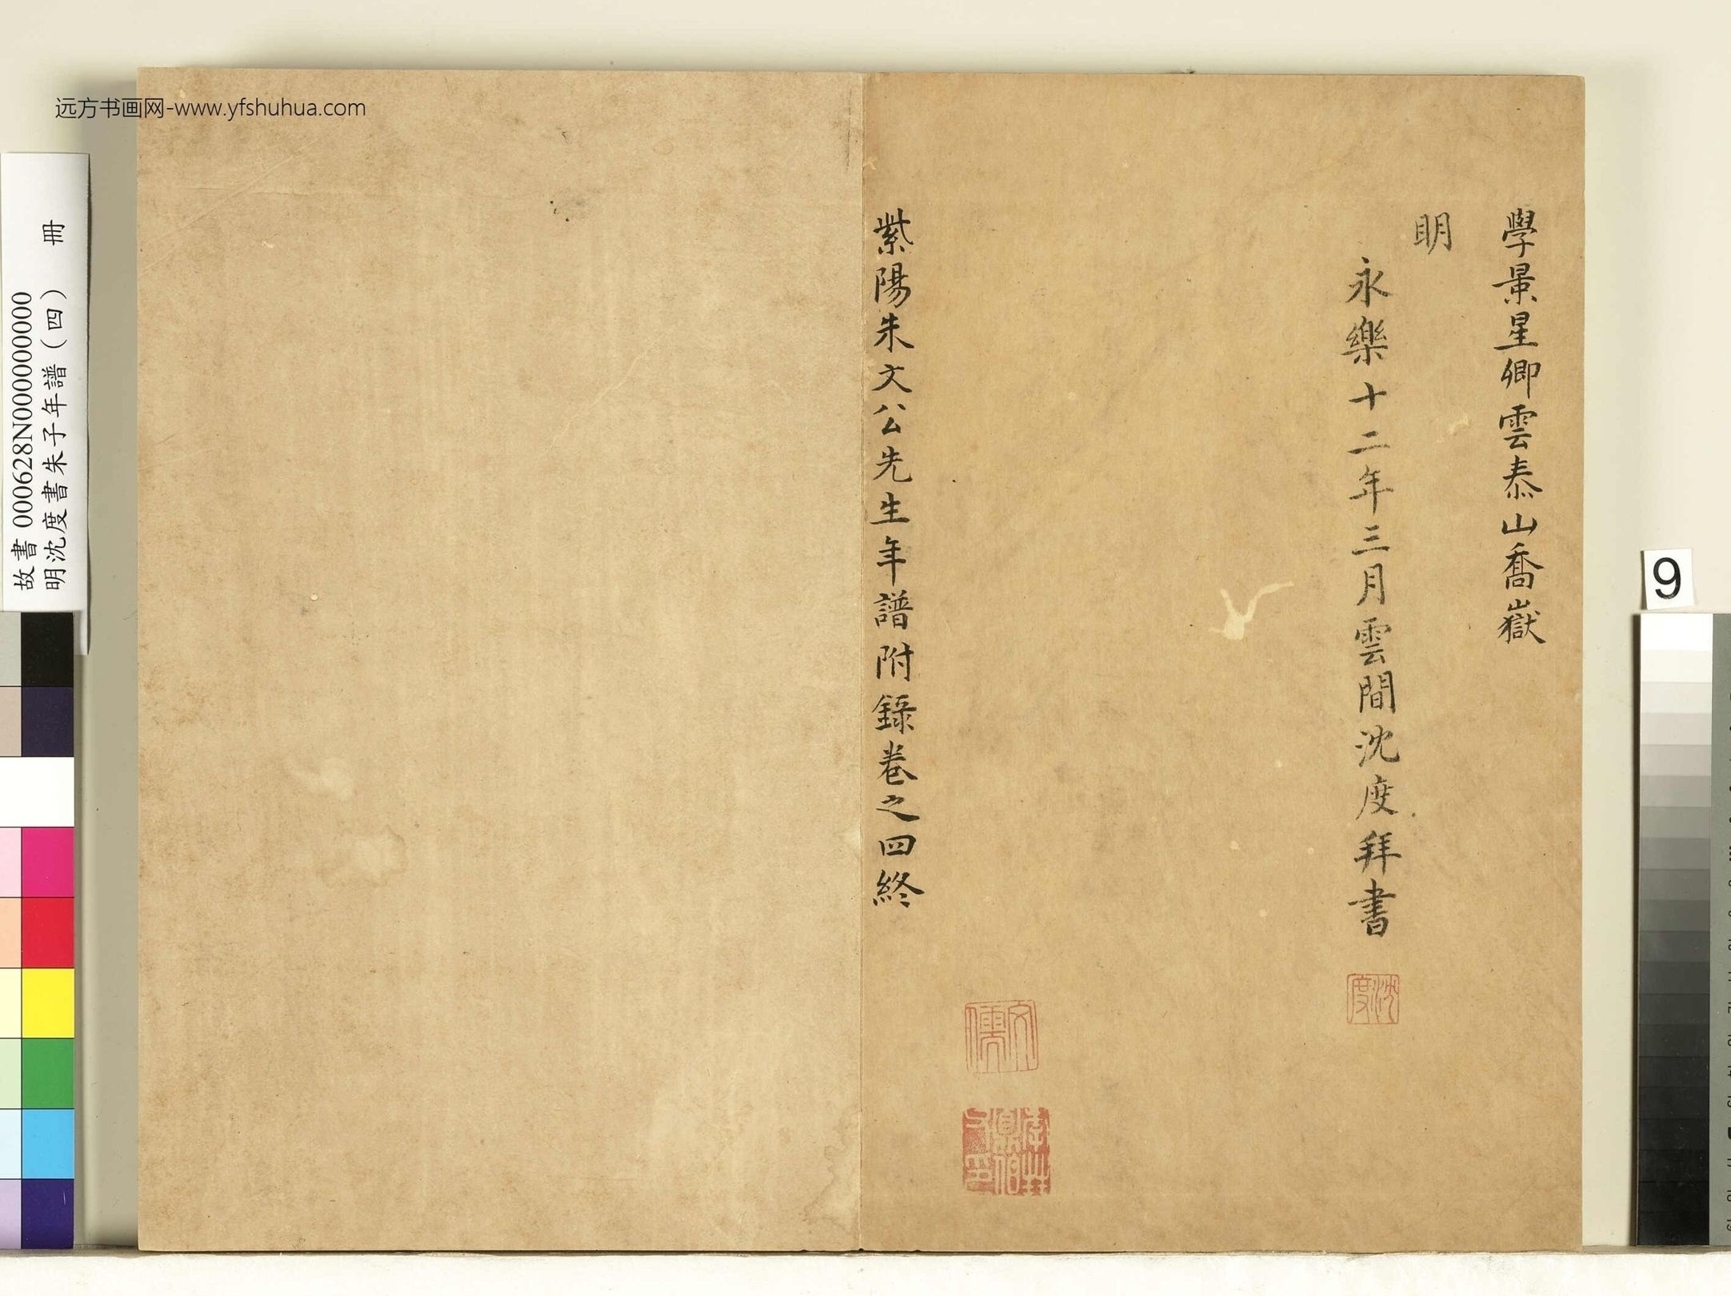 學景星卿雲泰山喬嶽
明
永樂十二年三月雲間沈度拜書
沈度
文儒
紫陽朱文公先生年譜附錄卷之四終
远方书画网-www.yfshuhua.com
故書 000628N000000000
明沈度書朱子年譜(四) 冊
9